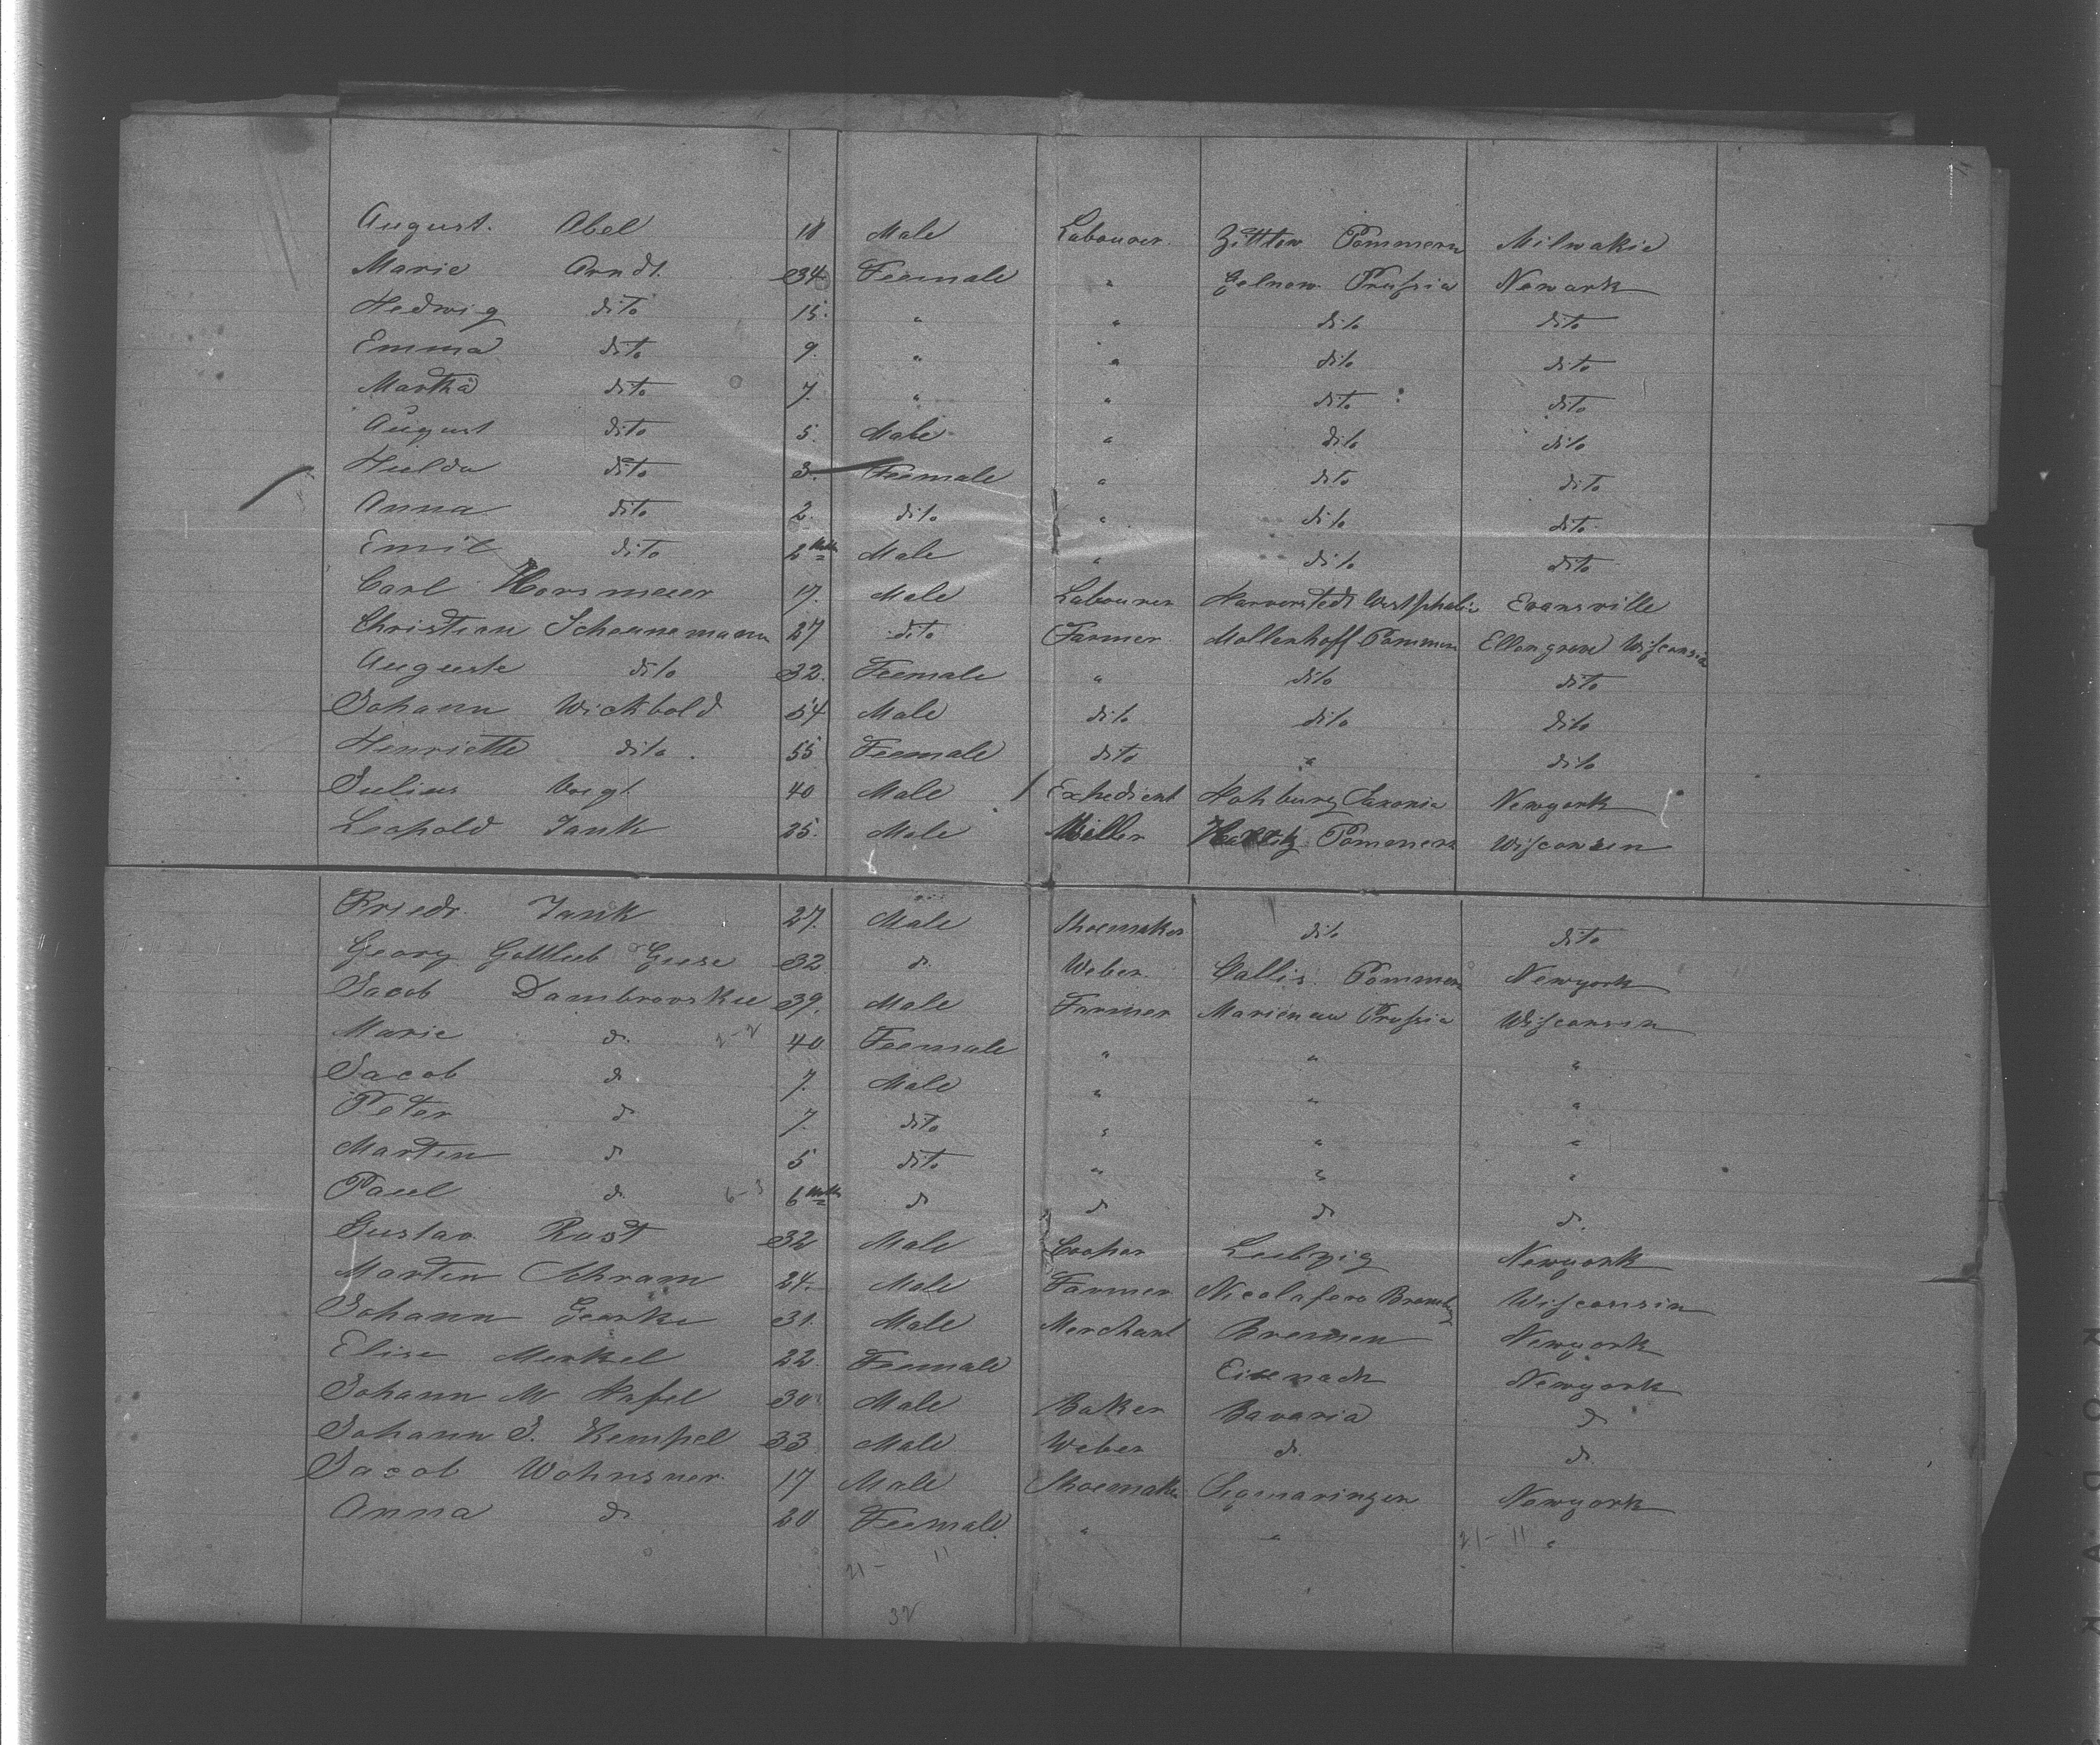 August. Abel 18 Male Labourer. Zittow Pommern Milwakie
Marie Arndt. 34 Feemale " Golnow Prussia Newark
Hedwig dito 15. " " dito dito
Emma dito 9. " " dito dito
Martha dito 7. " " dito dito
August dito 5. Male " dito dito
Hulda dito 3. Feemale " dito dito
Anna dito 2. dito " dito dito
Emil dito Male " dito dito
Carl Horsmeier 17. Male Labourer Westphalia Evansville
Christian Schaunamann 27 dito Farmer Mollenhoff Pommern Ellongrove Wisconsin
Auguste dito 32. Feemale " dito dito
Johann Wickbold 54 Male dito dito dito
Henriette dito. 55 Feemale dito " dito
Julius Voigt 40 Male Expedient Hohburg Saxonia Newyork
Leopold Jank 25. Male Miller Pommern Wisconsin
Friedr. Jank 27. Male Shoemaker dito dito
Georg Gottlieb Guse 32 d. Weber. Callis Pommern Newyork
Jacob Dambrovskie 39. Male Farmer Marienau Prussia Wisconsin
Marie d. 40 Feemale " " "
Jacob d. 7. Male " " "
Peter d 7. dito " " "
Marten d 5 dito " " "
Paul d. 6 Mths d d d d.
Gustav Rust 32 Male Cooper Leibzig Newyork
Marten Schram 24. Male Farmer Wisconsin
Johann Gearke 31. Male Merchant Bremen Newyork
Elise Merkel 22. Feemale Eisenach Newyork
Johann M Hassel 30 Male Baker Bavaria d
Johann J. Kempel 33 Male Weber d. d.
Jacob Wohnsner. 17 Male Shoemaker Segmaringen Newyork
Anna d. 20 Feemale. " " "
21- 11 21- 11
32